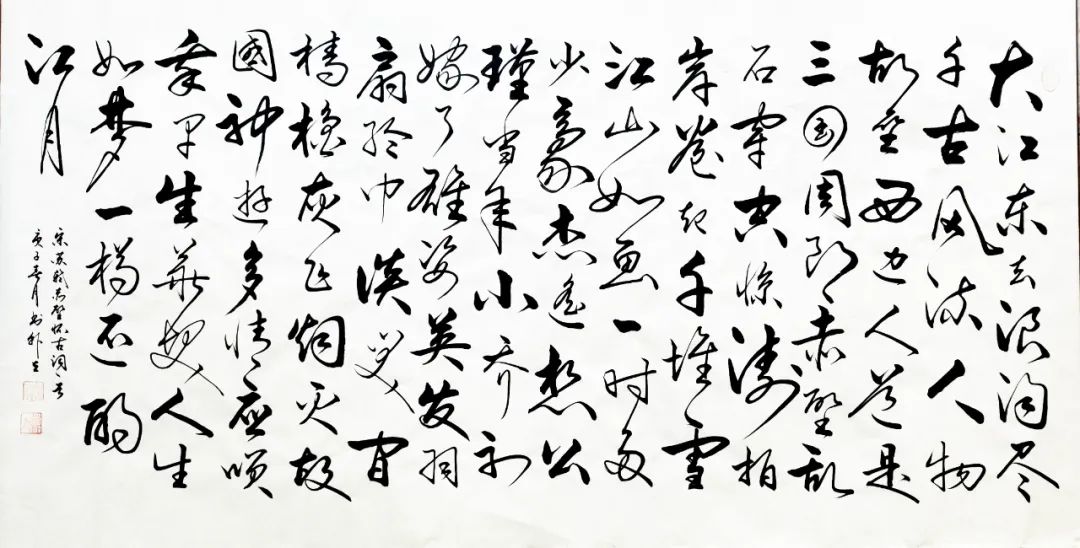 大江东去浪淘尽
千古风流人物
故垒西边人道是
三国周郎赤壁乱
石穿空惊涛拍
岸卷起千堆雪
江山如画一时多
少豪杰遥想公
瑾当年小乔初
嫁了雄姿英发羽
扇纶巾谈笑间
樯橹灰飞烟灭故
國神游多情应咲
我早生華发人生
如梦一樽还酹
江月
宋苏轼赤壁怀古词一首
庚子春月